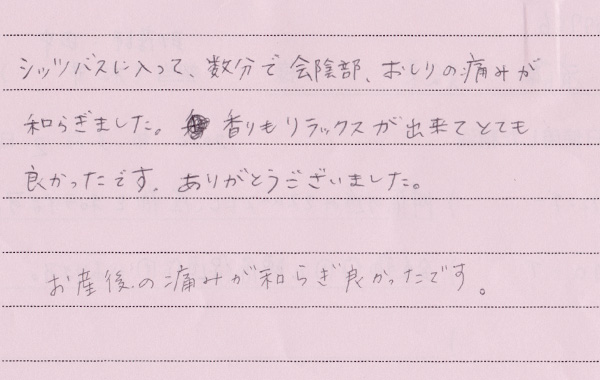 シッツバスに入って、数分で会陰部、おしりの痛みが
和らぎました。香りもリラックスが出来てとても
良かったです。ありがとうございました。
お産後の痛みが和らぎ良かったです。